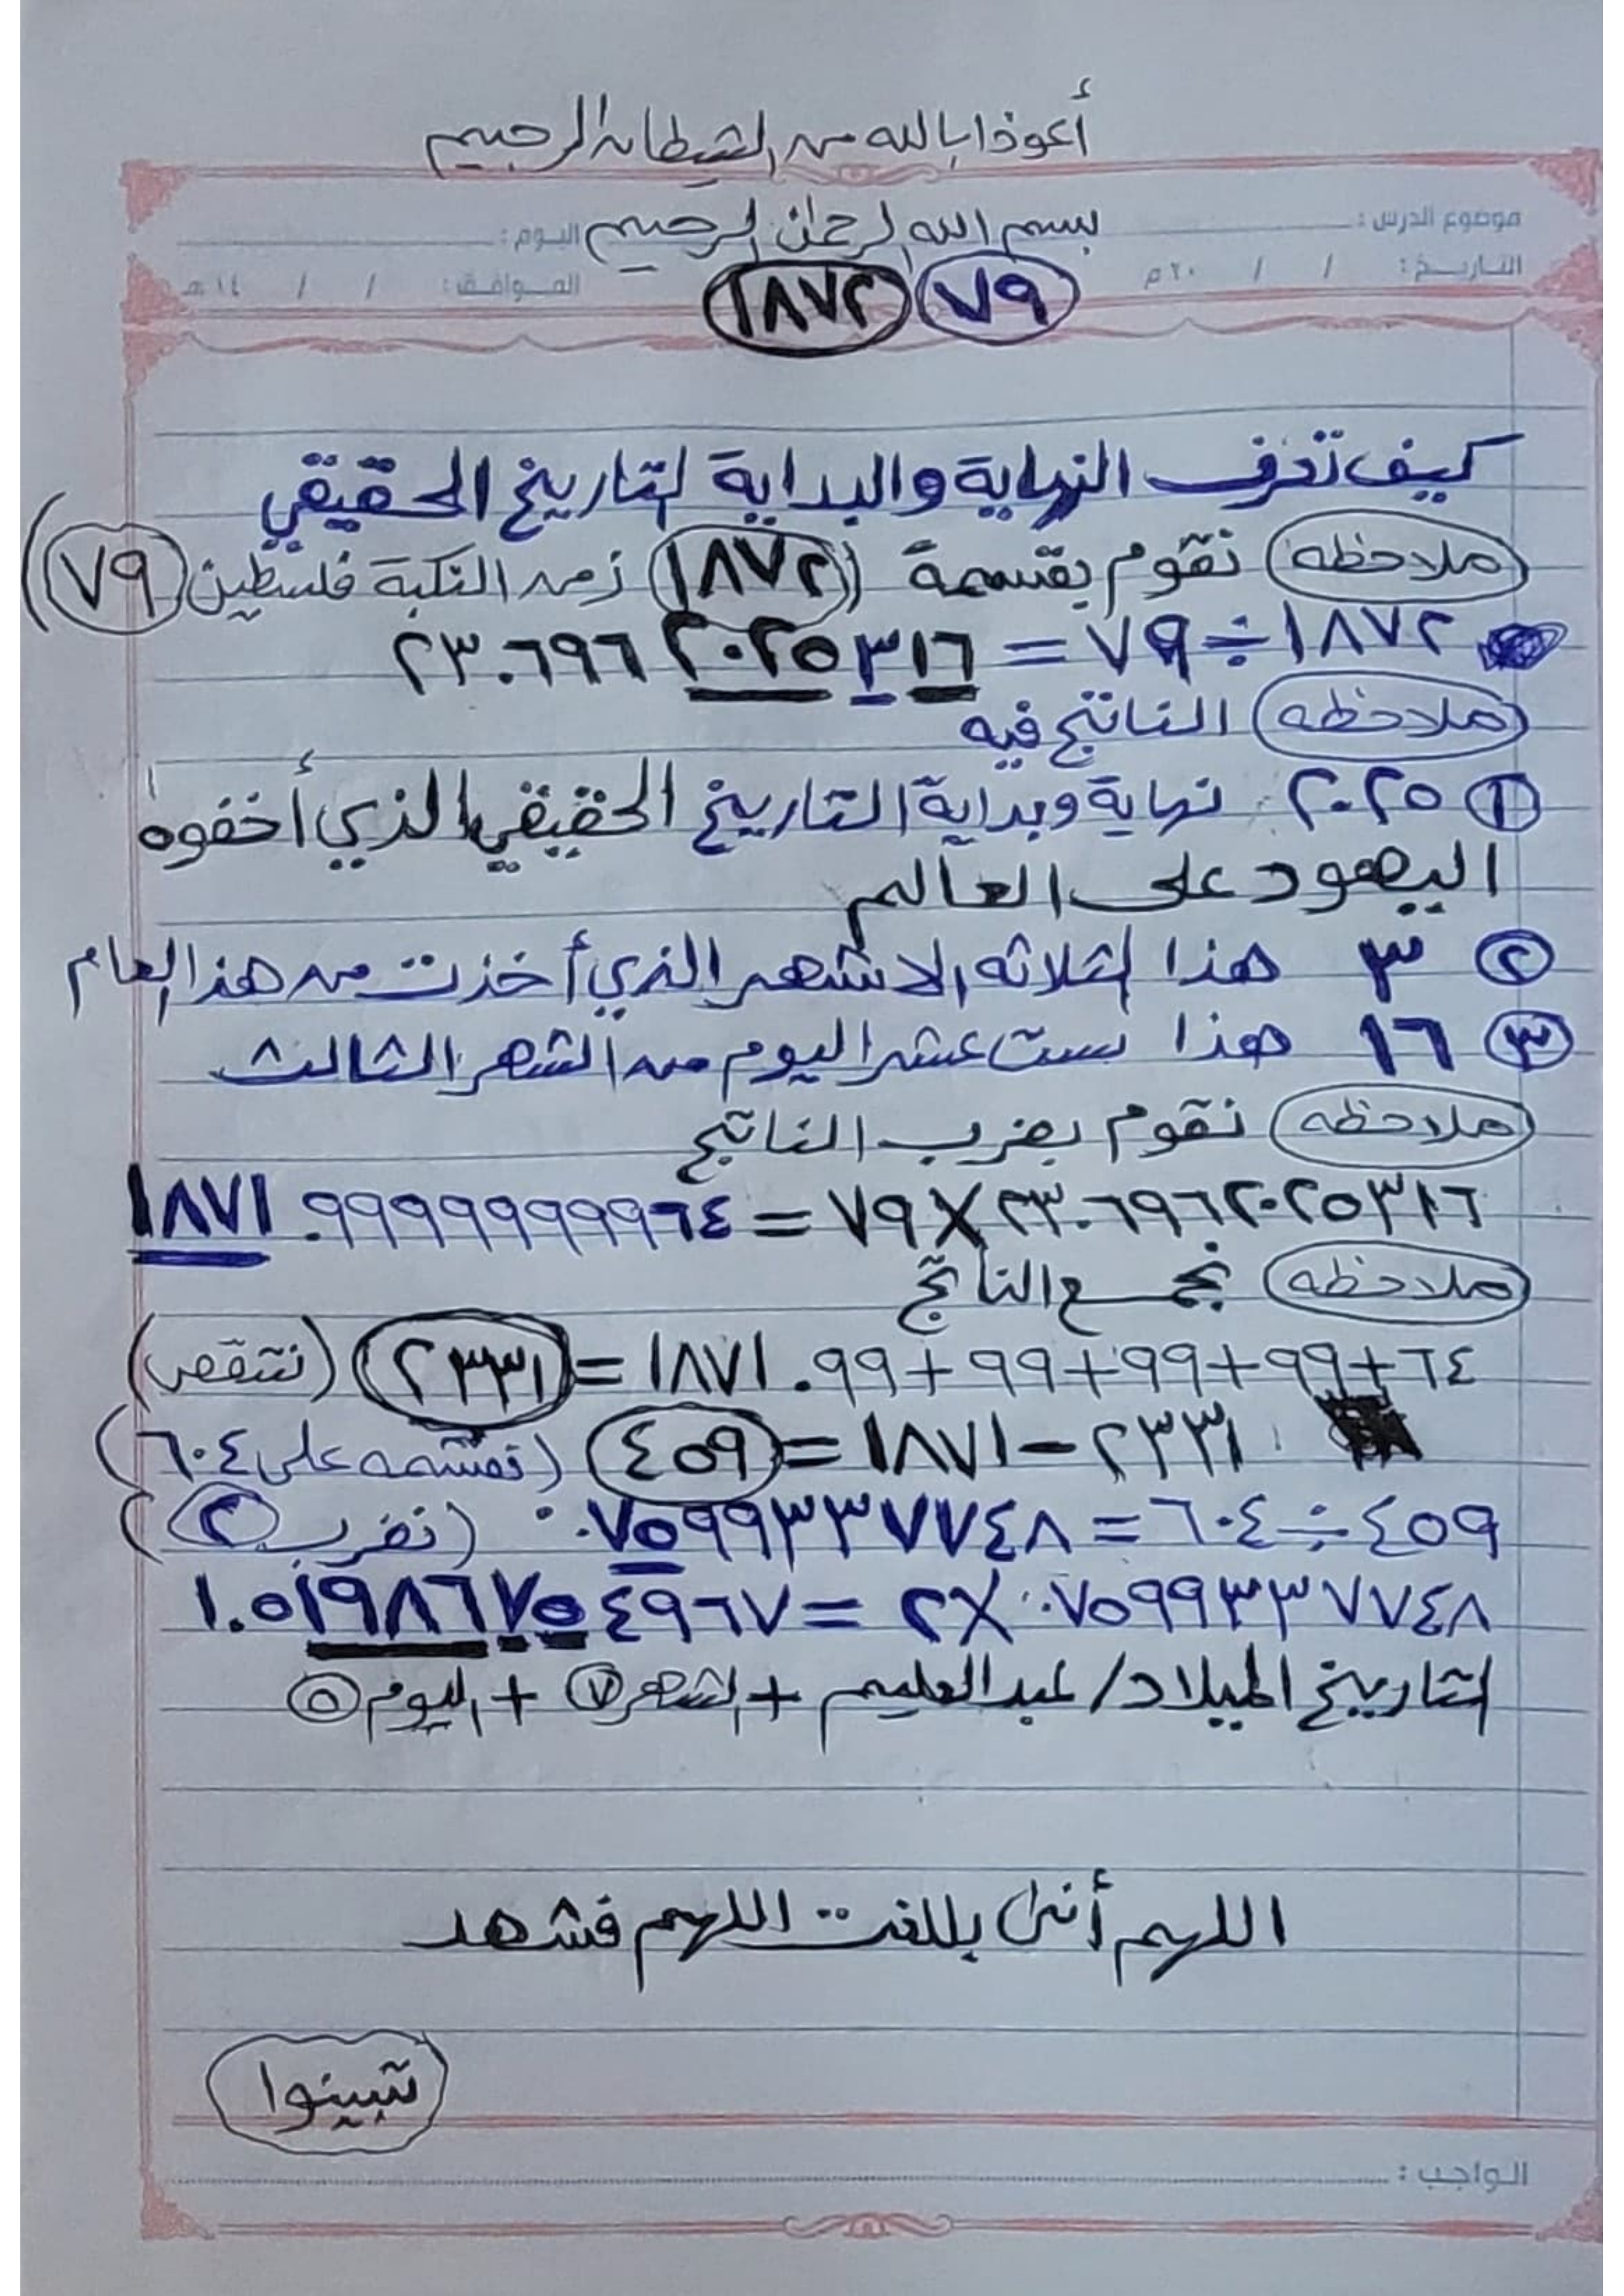 أعوذ ابالله من الشيطان الرجيم
موضوع الدرس : بسم الله الرحمن الرحيم اليوم :
التاريخ : / / ٢٠ م الموافق : / / ١٤ هـ
٧٩ ١٨٧٢
كيف تعرف النهاية والبداية لتاريخ الحقيقي
ملاحظه نقوم بقسمة (١٨٧٢) زمن النكبة فلسطين ٧٩)
١٨٧٢ ÷ ٧٩ = ٢٣.٦٩٦٢٠٢٥٣١٦
ملاحظه الناتج فيه
١ ٢٠٢٥ نهاية وبداية التاريخ الحقيقي الذي أخفوه
اليهود على العالم
٢ ٣ هذا لثلاثه الاشهر الذي أخذت من هذا العام
٣ ١٦ هذا ست عشر اليوم من الشهر الثالث
ملاحظه نقوم بضرب الناتج
٢٣.٦٩٦٢٠٢٥٣١٦ × ٧٩ = ١٨٧١.٩٩٩٩٩٩٩٩٩٦٤
ملاحظه نجمع الناتج
٦٤+٩٩+٩٩+٩٩+٩٩.١٨٧١ = ٢٣٣١ (نتقص)
٢٣٣١ − ١٨٧١ = ٤٥٩ (نقسمه على ٦٠٤)
٤٥٩ ÷ ٦٠٤ = ٠.٧٥٩٩٣٣٧٧٤٨ (نضرب ٢)
٠.٧٥٩٩٣٣٧٧٤٨ × ٢ = ١.٥١٩٨٦٧٥٤٩٦٧
لتاريخ الميلاد/ عبد العليم + الشهر ٧ + اليوم ٥
اللهم أني بلغت اللهم فشهد
تبينوا
الواجب :